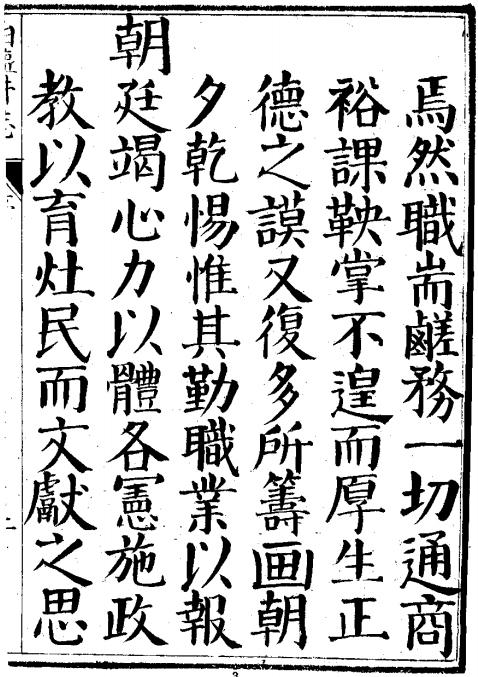 焉然職耑鹺務一切通商
裕課鞅掌不遑而厚生正
德之謨又復多所籌画朝
夕乾惕惟其勤職業以報
朝廷竭心力以體各憲施政
教以育灶民而文獻之思